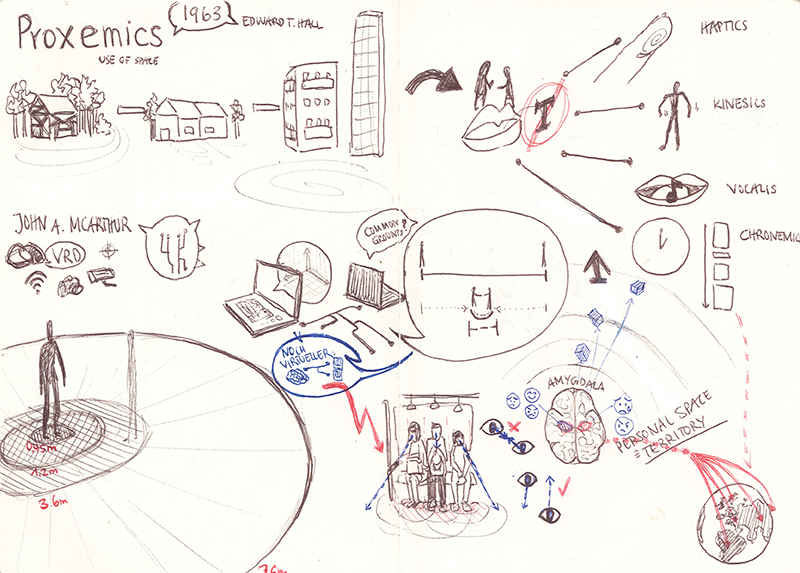 Proxemics
1963
EDWARD T. HALL
USE OF SPACE
HAPTICS
KINESICS
VOCALIS
CHRONEMICS
JOHN A. MCARTHUR
VRD
COMMON GROUNDS?
NOCH VIRTUELLER
AMYGDALA
PERSONAL SPACE
= TERRITORY
0.45m
1.2m
3.6m
7.6m